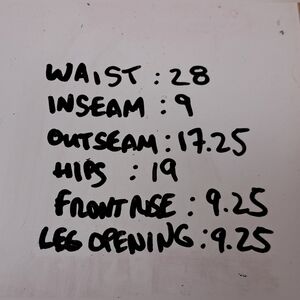 WAIST : 28
INSEAM : 9
OUTSEAM : 17.25
HIPS : 19
FRONT RISE : 9.25
LEG OPENING : 9.25